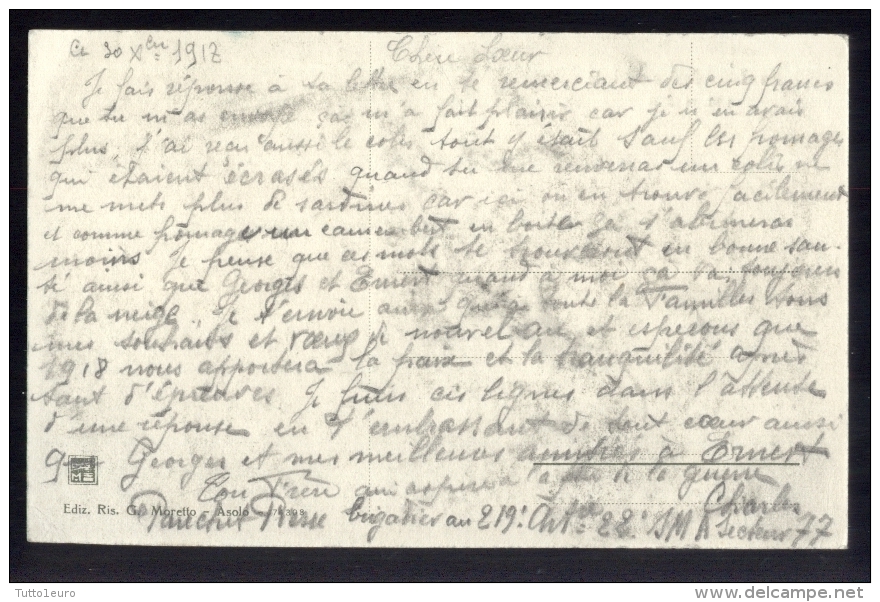 Ce 30 Xbre 1917
Chère Sœur
Je fais réponse à ta lettre en te remerciant des cinq francs
que tu m'as envoyé ças m'a fait plaisir car je n'en avais
plus. J'ai reçu aussi le colis tout y était sauf les fromages
qui étaient écrasés quand tu me renverras un colis ne
me mets plus de sardines car ici on en trouve facilement
et comme fromage un camembert en boite ça s'abimeras
moins Je pense que ces mots te trouveront en bonne san-
té ainsi que Georges et Ernest quand à moi ça va toujours
de la neige. Je t'envoie ainsi qu'à toute la Familles tous
mes souhaits et vœux de nouvel an et esperons que
1918 nous apportera la paix et la tranquilité après
tant d'épreuves Je finis ces lignes dans l'attente
d'une réponse en t'embrassant de tout cœur aussi
Georges et mes meilleures amitiés à Ernest
Ton Frère qui aspire à la fin de la guerre
Charles
Ediz. Ris. G. Moretto - Asolo
brigadier au 219e Art 22e SMA Secteur 77
Tuttoleuro
www.delcampe.net